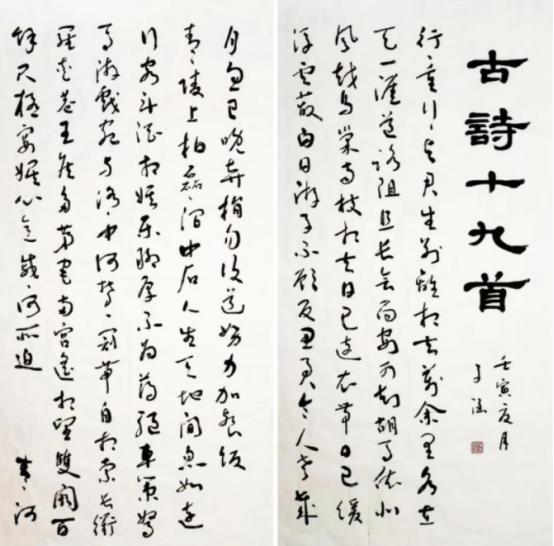 古詩十九首
壬寅夏月
子涵
行〻重行〻與君生別離相去萬余里各在
天一涯道路阻且長會面安可知胡馬依北
風越鳥巢南枝相去日已遠衣帶日已緩
浮雲蔽白日游子不顧反思君令人老歲
月忽已晚棄捐勿復道努力加餐飯
青〻陵上柏磊〻澗中石人生天地間忽如遠
行客斗酒相娛樂聊厚不為薄驅車策駑
馬游戲宛與洛〻中何鬱〻冠帶自相索長衢
羅夾巷王侯多第宅兩宮遙相望雙闕百
餘尺極宴娛心意戚〻何所迫 青〻河